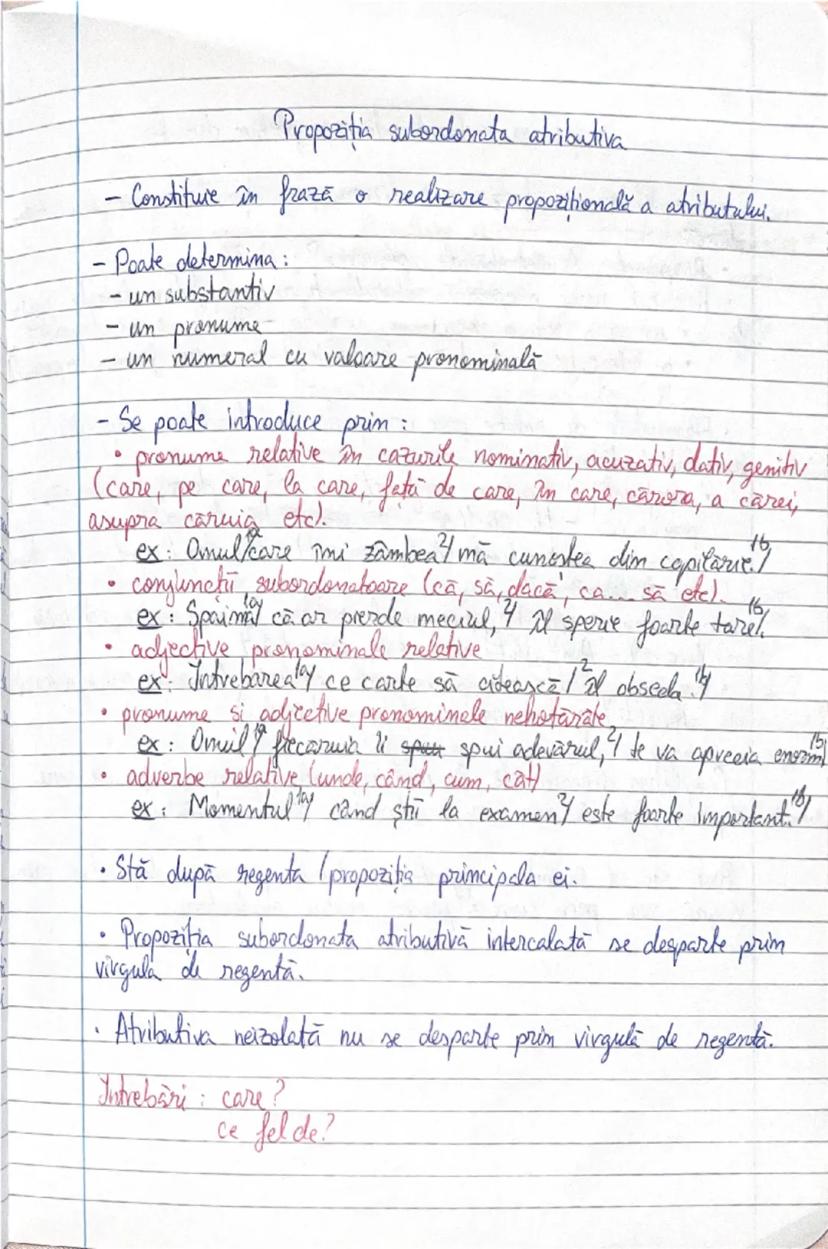 Propoziția subordonata atributiva
- Constituie în frază o realizare propozițională a atributului.
- Poate determina:
- un substantiv
- un pronume
- un numeral cu valoare pronominală
- Se poate introduce prin:
• pronume relative în cazurile nominativ, acuzativ, dativ, genitiv
(care, pe care, la care, față de care, în care, cărora, a cărei,
asupra căruia etc).
ex: Omul/ care îmi zâmbea 2/ mă cunoștea din copilărie. 1b/
• conjuncții subordonatoare (că, să, dacă, ca... să etc).
ex: Spaima 1a/ că ar pierde meciul, 2/ îl sperie foarte tare/. 1b
• adjective pronominale relative
ex: Întrebarea 1a/ ce carte să citească / 2 îl obseda. 1b/
• pronume si adjective pronominale nehotărâte
ex: Omul 1a/ fiecăruia îi spui adevărul, 2/ te va aprecia enorm 1b/
• adverbe relative (unde, când, cum, cât)
ex: Momentul 1a/ când știi la examen 2/ este foarte important. 1b/
• Stă după regenta / propoziția principala ei.
• Propoziția subordonata atributivă intercalată se desparte prim
virgula de regentă.
• Atributiva neizolată nu se desparte prim virgulă de regentă.
Întrebări: care?
ce fel de?